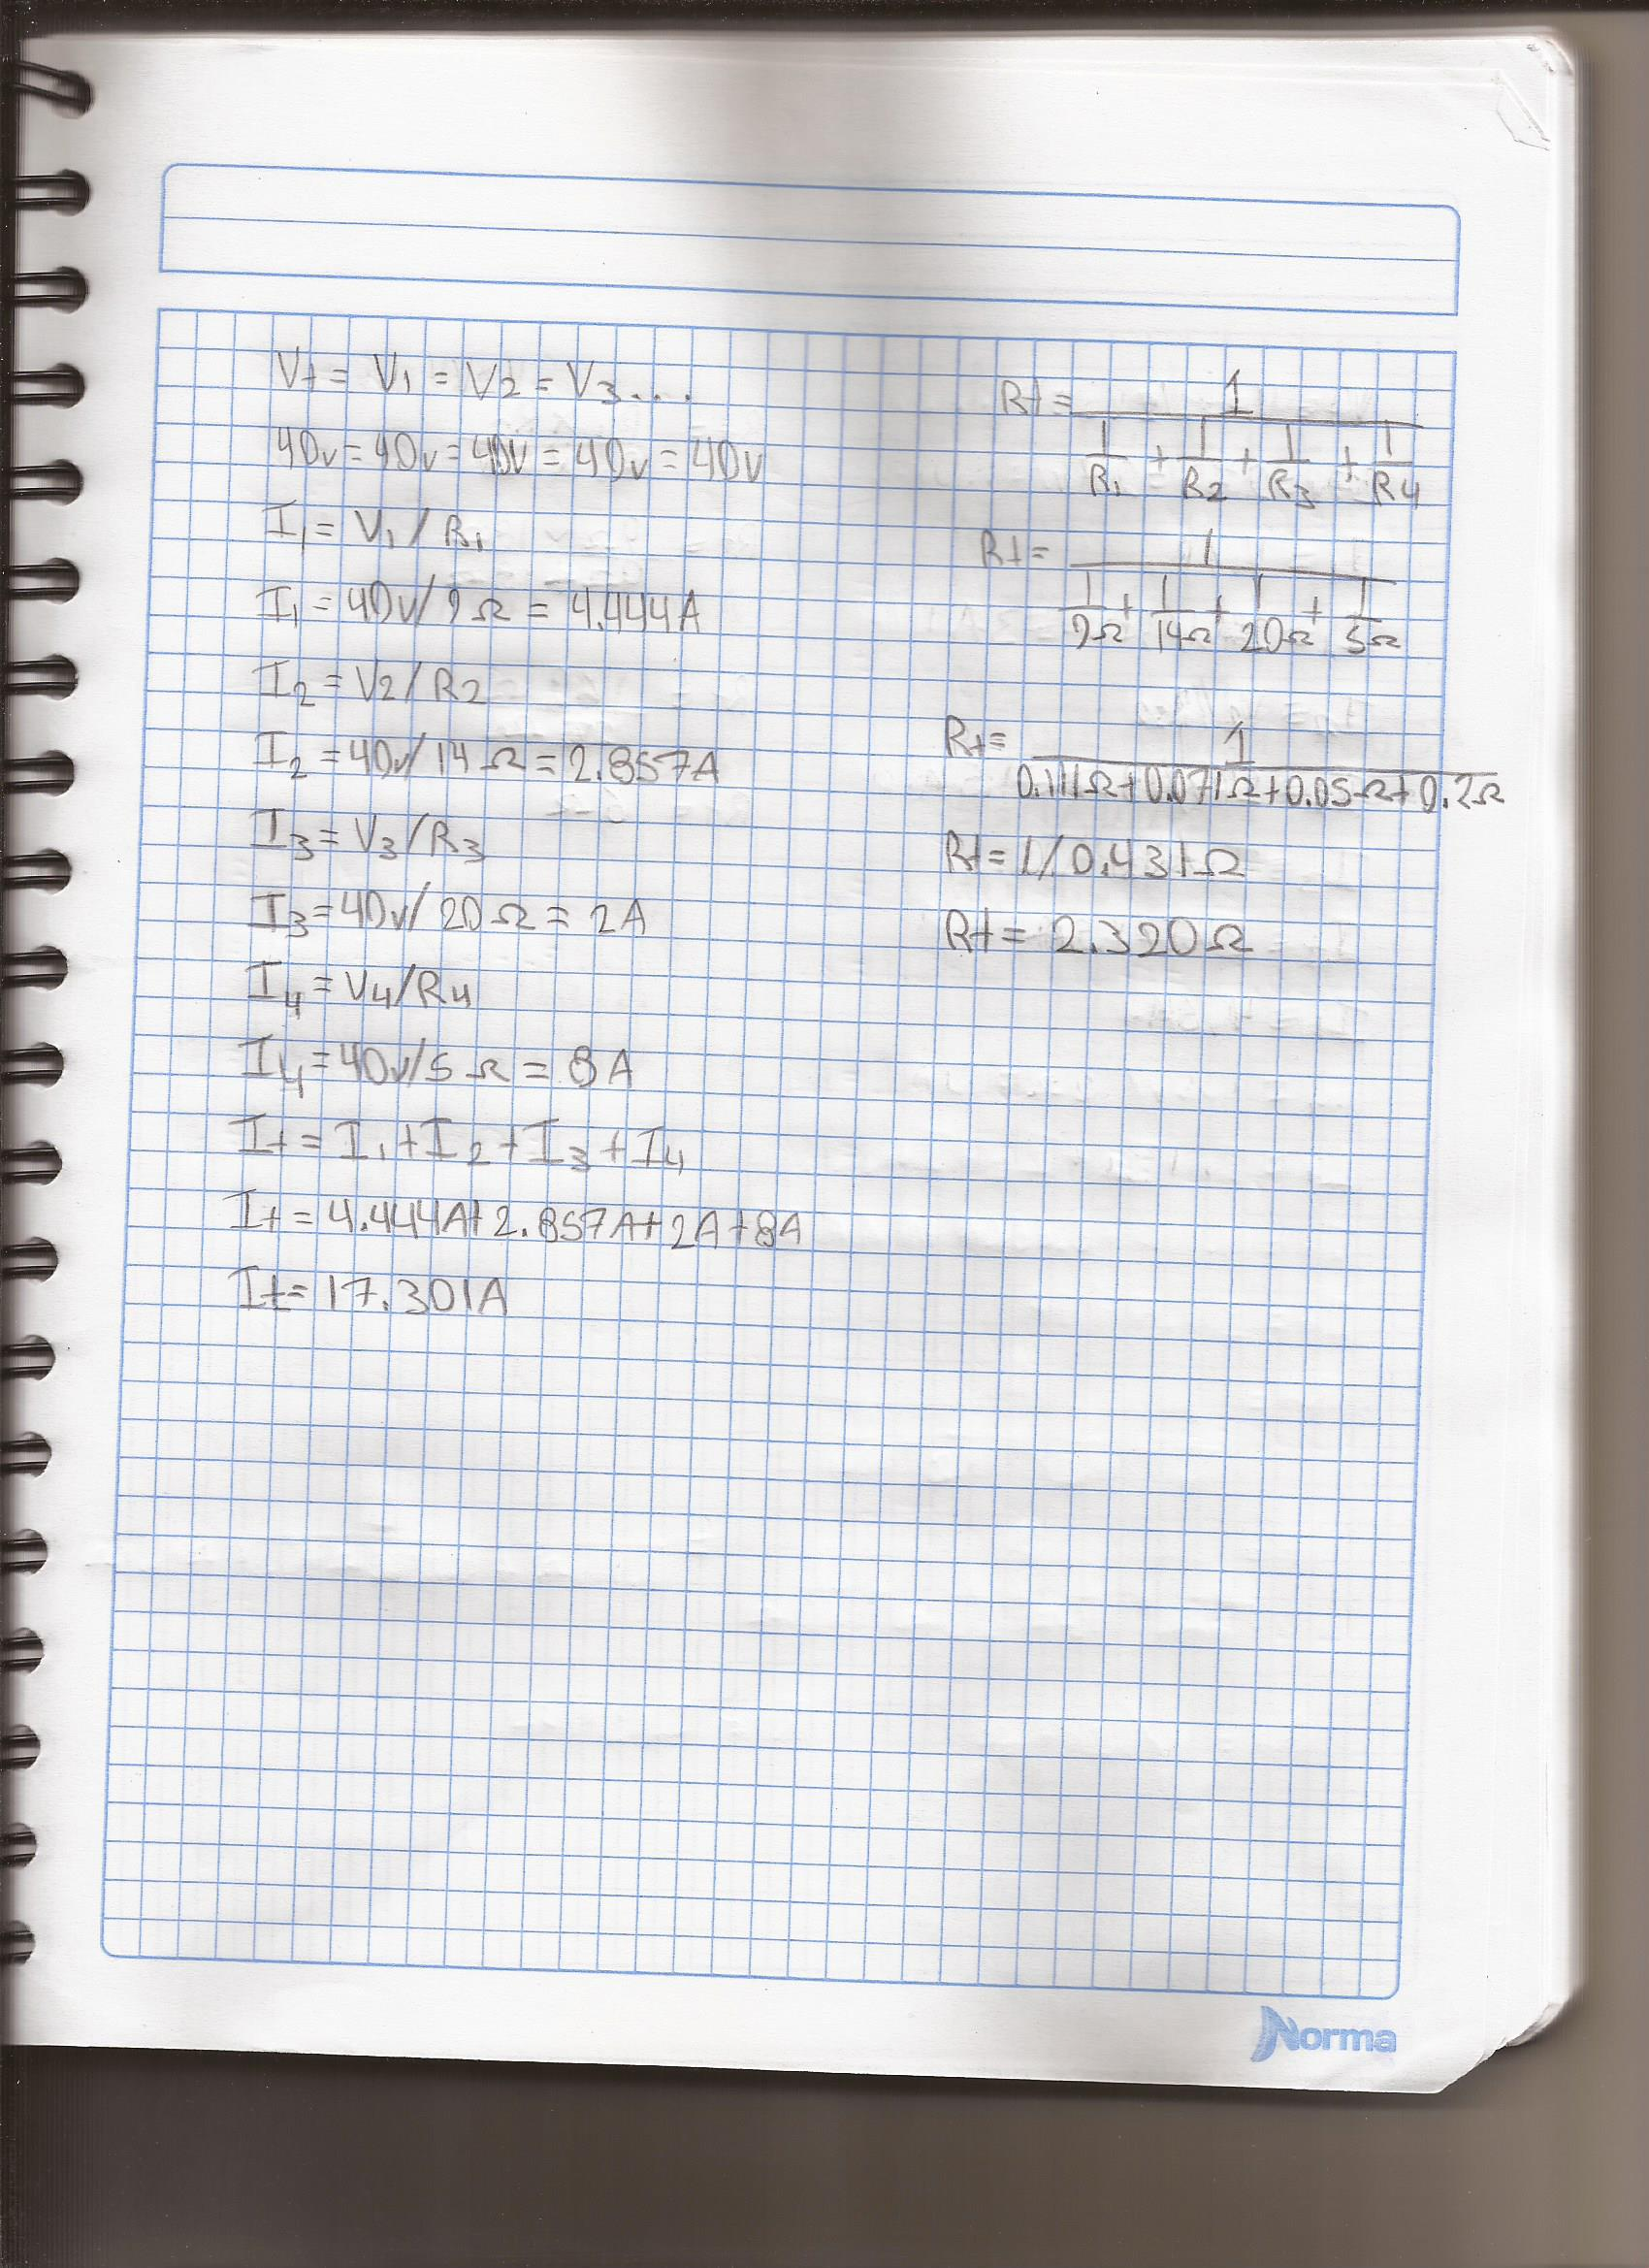 Vt = V1 = V2 = V3....
40v = 40v = 40v = 40v = 40v
I1 = V1 / R1
I1 = 40v/9Ω = 4.444A
I2 = V2/R2
I2 = 40v/14Ω = 2.857A
I3 = V3/R3
I3 = 40v/20Ω = 2A
I4 = V4/R4
I4 = 40v/5Ω = 8A
It = I1 + I2 + I3 + I4
It = 4.444A + 2.857A + 2A + 8A
It = 17.301A
Rt = 1
1 + 1 + 1 + 1
R1 R2 R3 R4
Rt = 1
1 + 1 + 1 + 1
9Ω 14Ω 20Ω 5Ω
Rt = 1
0.111Ω + 0.071Ω + 0.05Ω + 0.2Ω
Rt = 1/0.431Ω
Rt = 2.320Ω
Norma